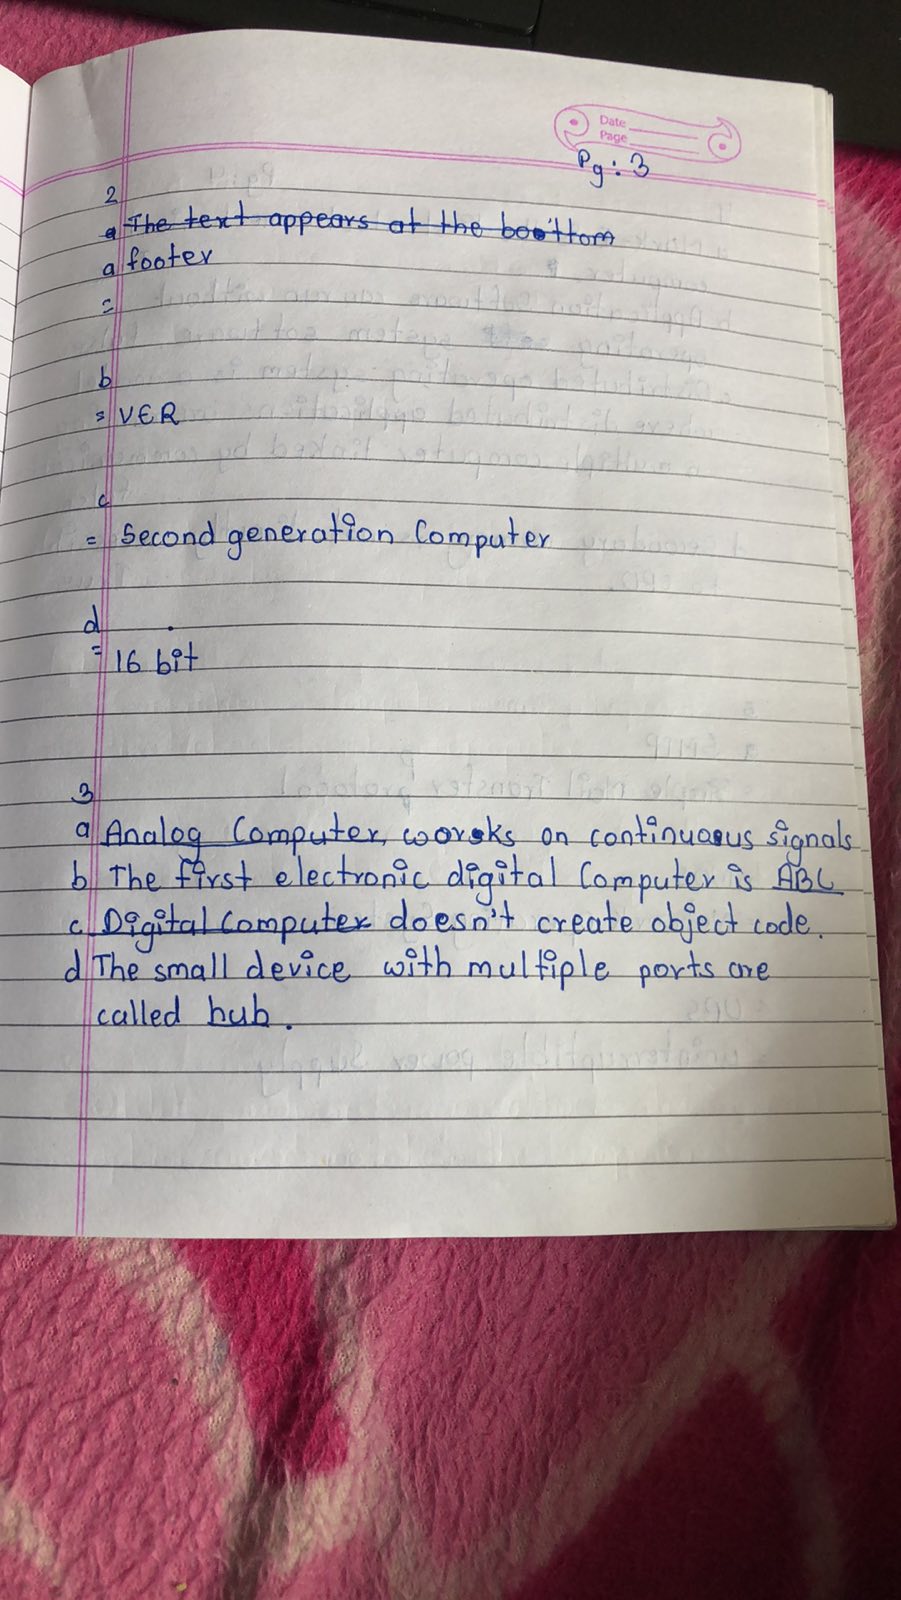 Date
Page
Pg: 3
2
a The text appears at the boottom
a footer
=
b
= VER
c
= Second generation Computer
d
= 16 bit
3
a Analog Computer, works on continuous signals
b The first electronic digital Computer is ABC
c Digital Computer doesn't create object code.
d The small device with multiple ports are
called hub.